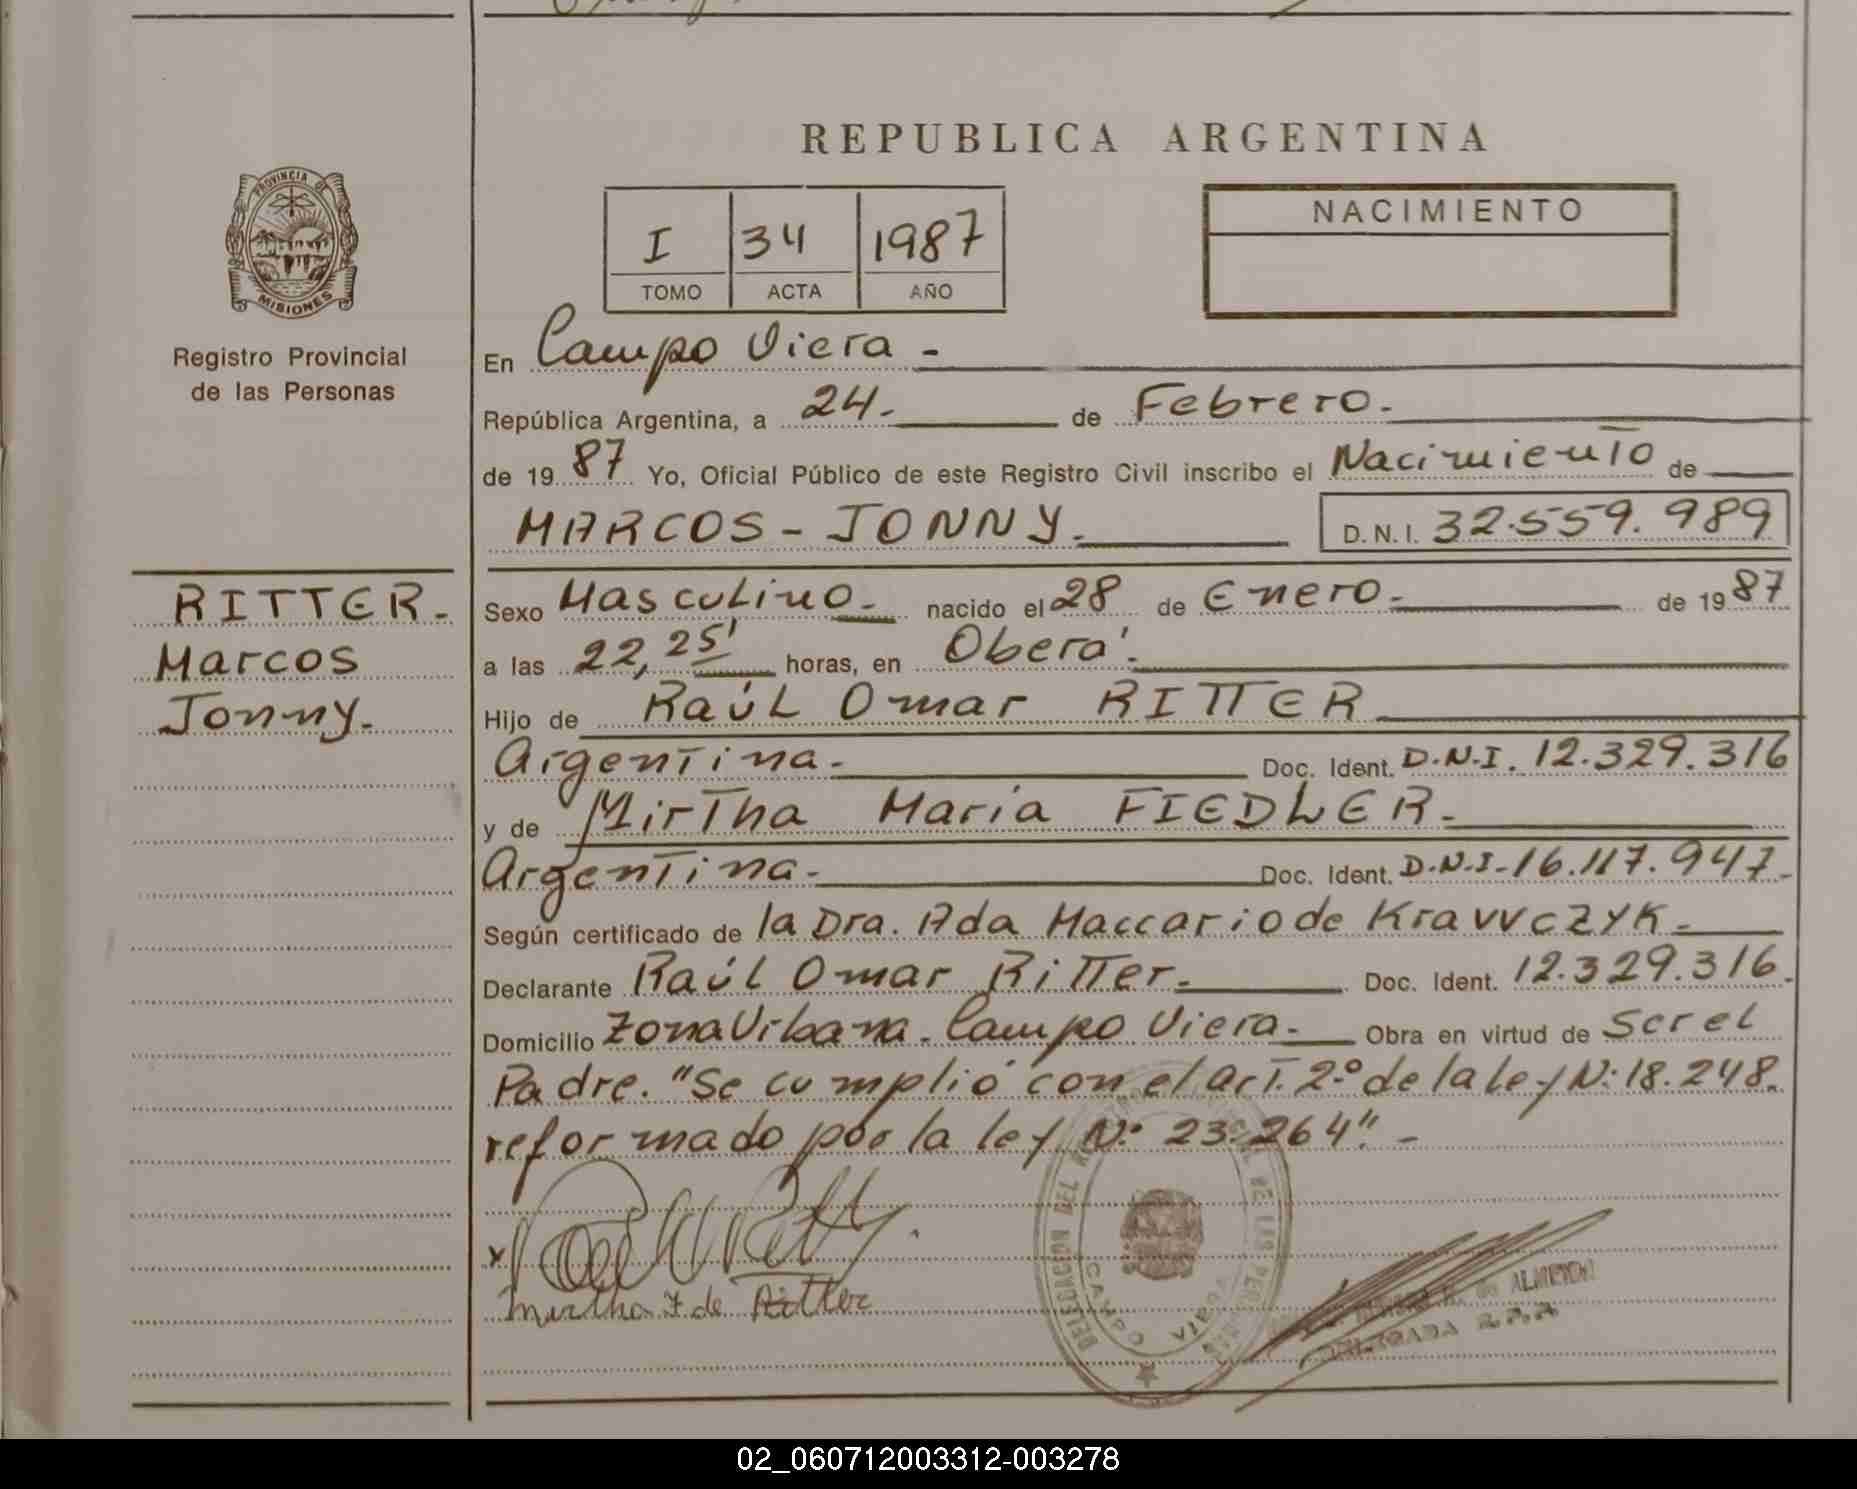 REPUBLICA ARGENTINA
PROVINCIA DE
MISIONES
Registro Provincial
de las Personas
I 34 1987
TOMO ACTA AÑO
NACIMIENTO
En Campo Viera -
República Argentina, a 24. de Febrero.
de 19 87 Yo, Oficial Público de este Registro Civil inscribo el Nacimiento de
MARCOS - JONNY. D.N.I. 32.559.989
RITTER.
Marcos
Jonny.
Sexo Masculino. nacido el 28 de Enero. de 19 87
a las 22,25' horas, en Oberá.
Hijo de Raúl Omar RITTER
Argentina. Doc. Ident. D.N.I. 12.329.316
y de Mirtha María FIEDLER.
Argentina. Doc. Ident. D.N.I. 16.117.947.
Según certificado de la Dra. Ada Maccario de Kravvczyk.
Declarante Raúl Omar Ritter. Doc. Ident. 12.329.316.
Domicilio Zona Urbana. Campo Viera. Obra en virtud de Ser el
Padre. "Se cumplió con el art. 2º de la ley Nº 18.248.
reformado por la ley Nº 23.264". -
x
Mirtha F. de Ritter
DELEGACION DEL REGISTRO PROVINCIAL DE LAS PERSONAS
CAMPO VIERA
DE ALMEIDA
DELEGADA R.P.P.
02_060712003312-003278